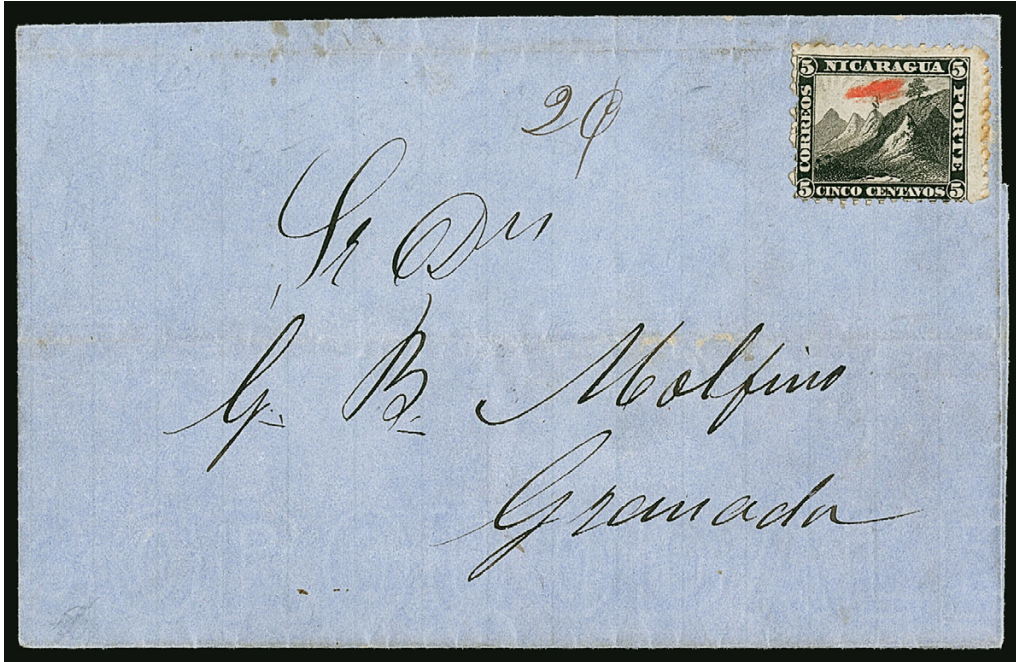 5 NICARAGUA 5
CORREOS
PORTE
5 CINCO CENTAVOS 5
Sr Dn
G. B. Molfino
Granada